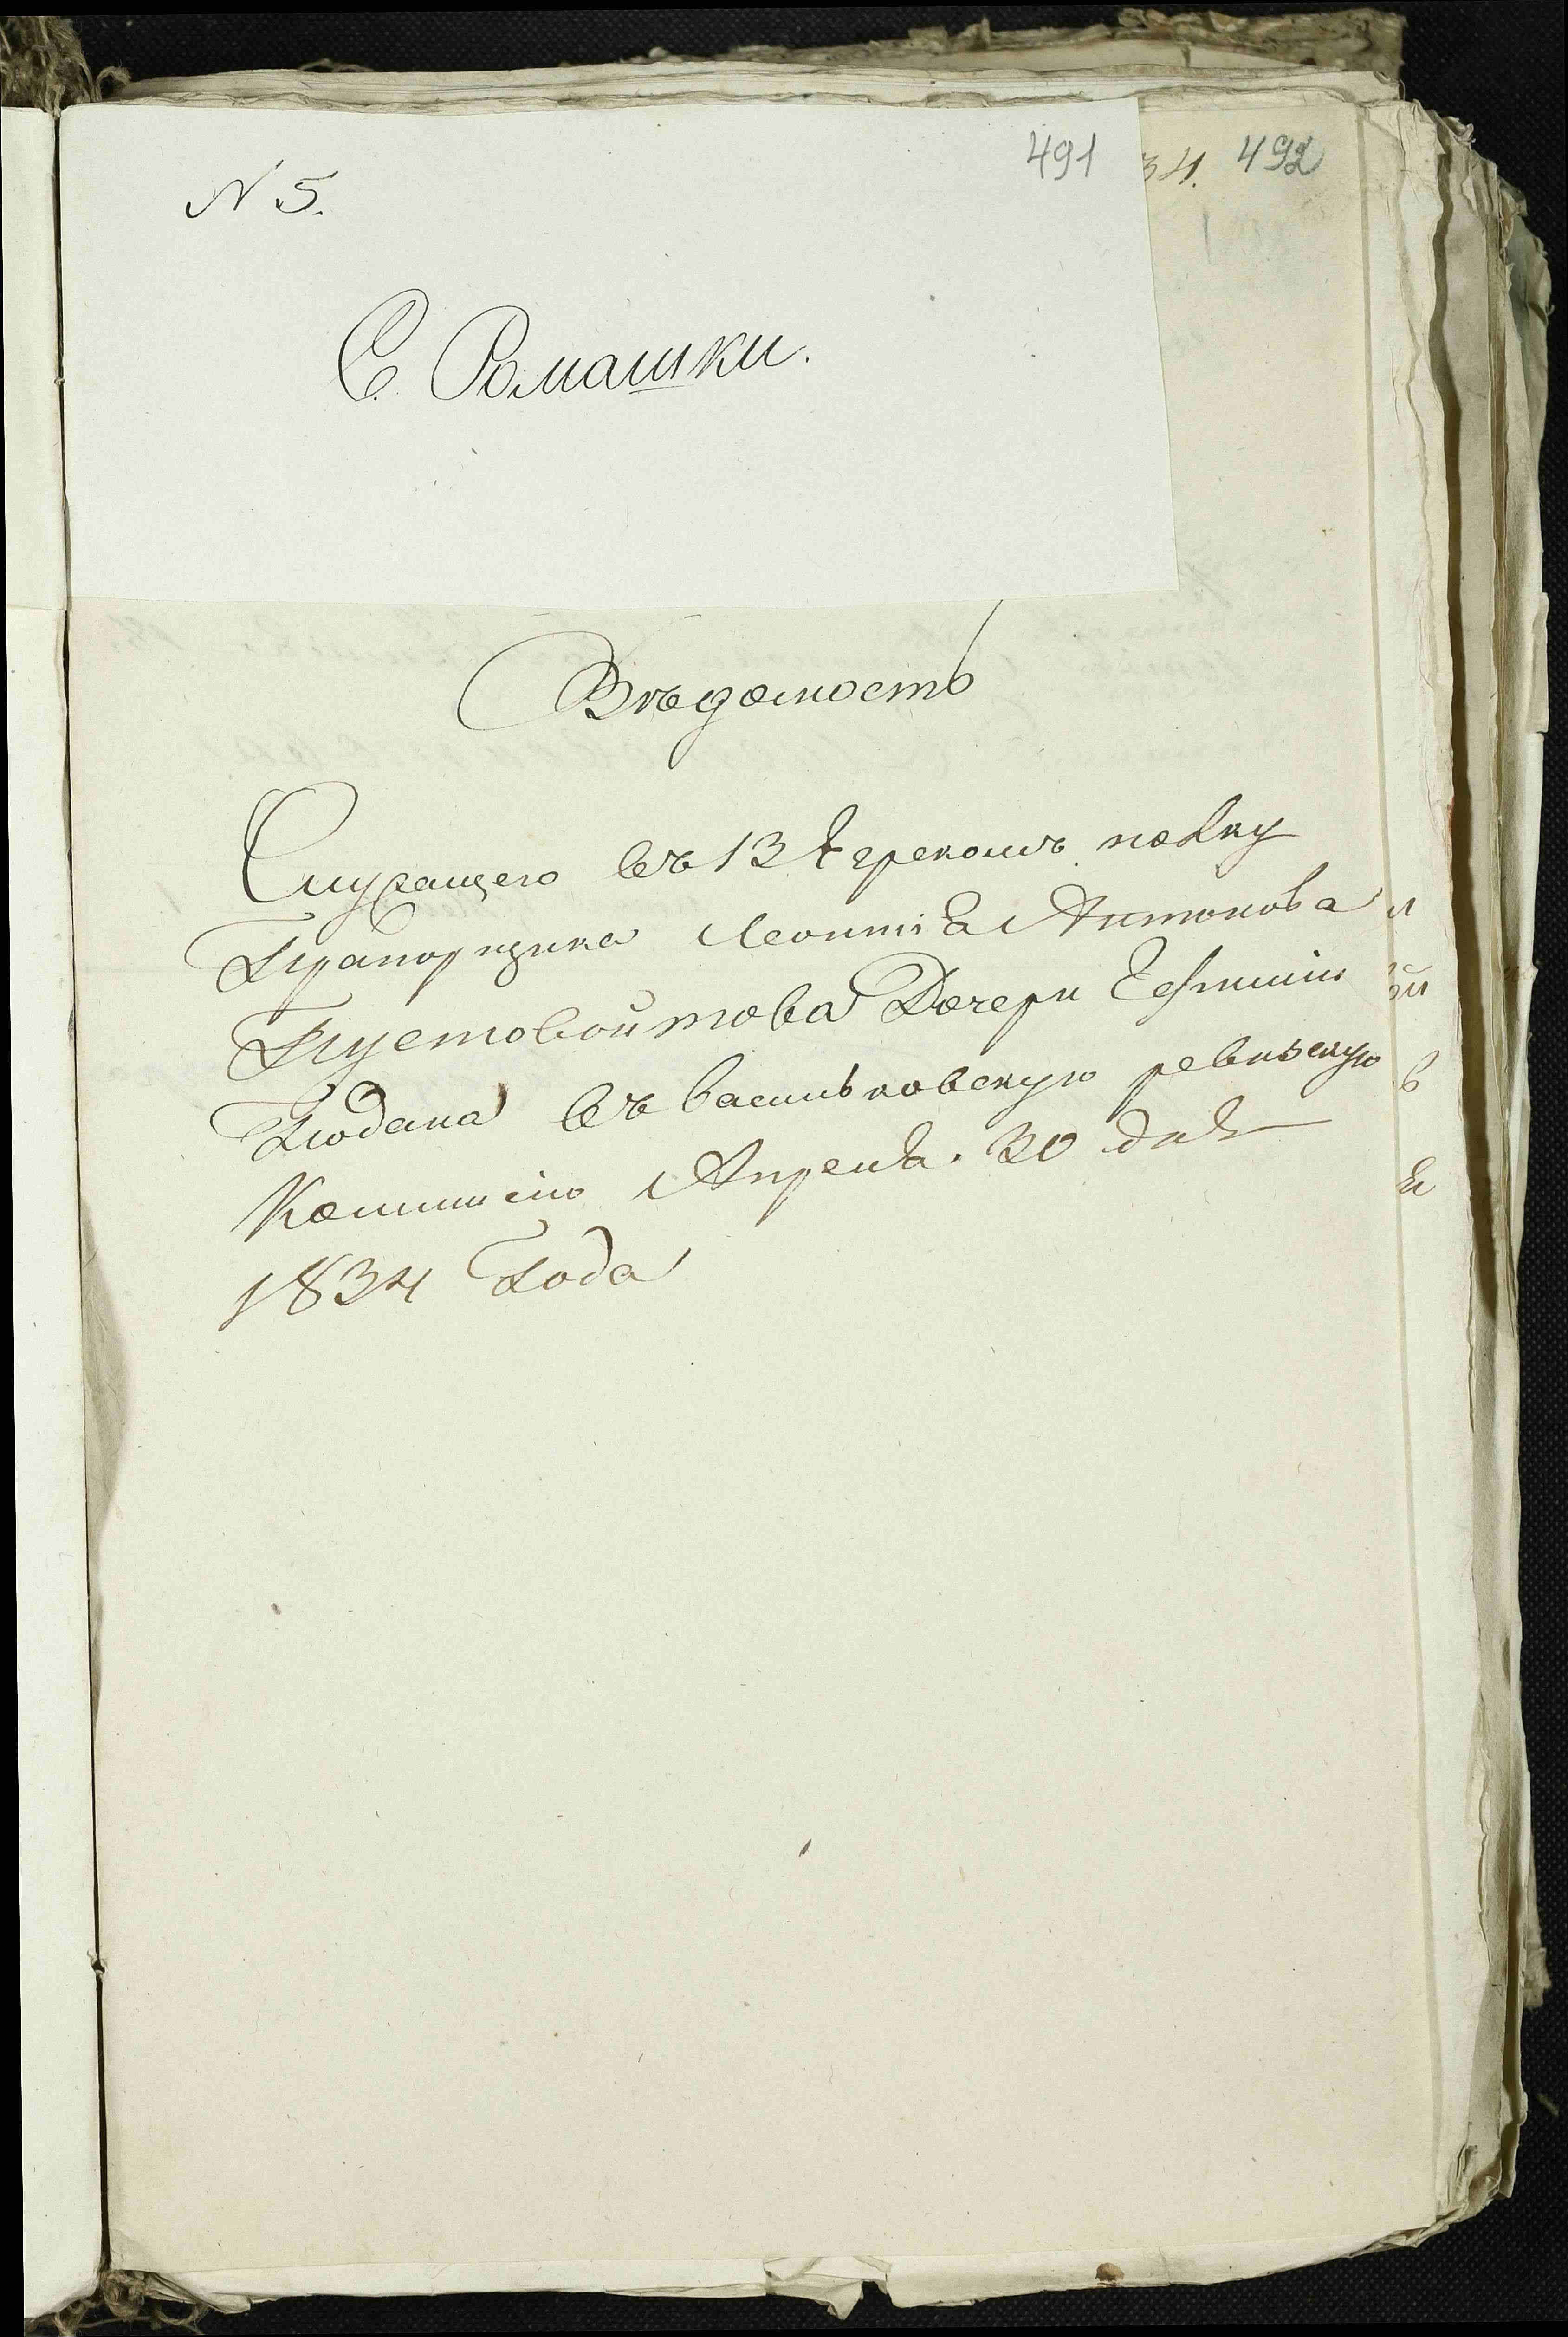 N 5.
491
34. 492
С. Ромашки.
Вѣдомость
Служащего въ 13 Егерскомъ полку
Прапорщика Леонтія Антонова
Пустовойтова Дочери Ефимии
Подана въ васильковскую ревизскую
Коммисію Апреля 30 дня
1834 Года